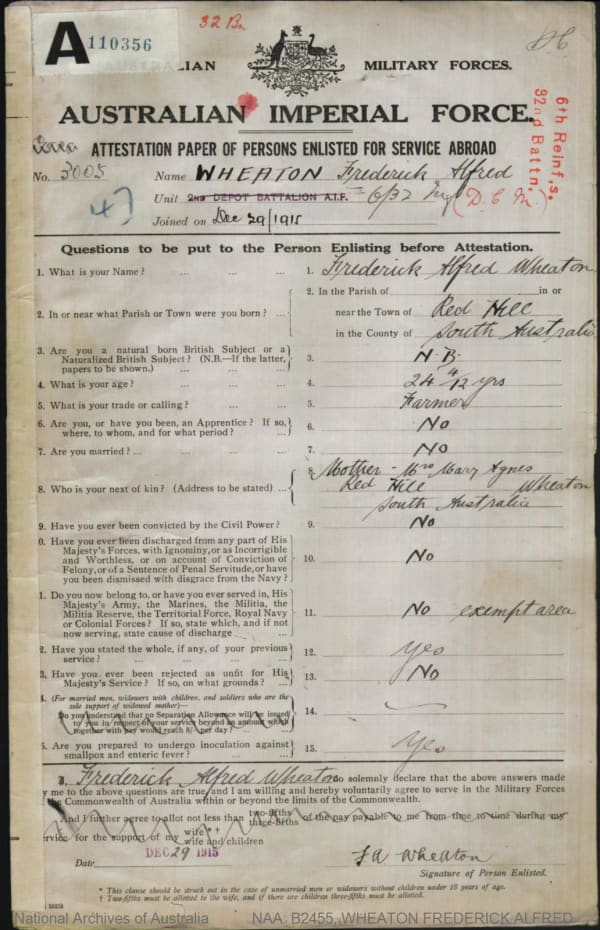 32 Bn
A 110356
LIAN MILITARY FORCES.
AUSTRALIAN IMPERIAL FORCE.
6th Reinf,s.
32nd Battn.
ATTESTATION PAPER OF PERSONS ENLISTED FOR SERVICE ABROAD
No. 3005 Name WHEATON Frederick Alfred
Unit 2ND DEPOT BATTALION A.I.F. 6/32
(D.C.M.)
47
Joined on Dec 29/1915
Questions to be put to the Person Enlisting before Attestation.
1. What is your Name? ... ... ... 1. Frederick Alfred Wheaton
2. In or near what Parish or Town were you born? ... 2. In the Parish of in or
near the Town of Red Hill
in the County of South Australia
3. Are you a natural born British Subject or a
Naturalized British Subject? (N.B.—If the latter,
papers to be shown.) ... ... 3. N.B.
4. What is your age? ... ... ... 4. 24 4/12 yrs
5. What is your trade or calling? ... ... 5. Farmer
6. Are you, or have you been, an Apprentice? If so,
where, to whom, and for what period? ... 6. No
7. Are you married? ... ... ... ... 7. No
8. Who is your next of kin? (Address to be stated) ... 8. Mother - Mrs Mary Agnes
Red Hill Wheaton
South Australia
9. Have you ever been convicted by the Civil Power? 9. No
0. Have you ever been discharged from any part of His
Majesty's Forces, with Ignominy, or as Incorrigible
and Worthless, or on account of Conviction of
Felony, or of a Sentence of Penal Servitude, or have
you been dismissed with disgrace from the Navy? 10. No
1. Do you now belong to, or have you ever served in, His
Majesty's Army, the Marines, the Militia, the
Militia Reserve, the Territorial Force, Royal Navy
or Colonial Forces? If so, state which, and if not
now serving, state cause of discharge 11. No exempt area
2. Have you stated the whole, if any, of your previous
service? ... ... ... ... 12. Yes
3. Have you ever been rejected as unfit for His
Majesty's Service? If so, on what grounds? ... 13. No
4. (For married men, widowers with children, and soldiers who are the
sole support of widowed mother)—
Do you understand that no Separation Allowance will be issued
to you in respect of your service beyond an amount which
together with pay would reach 8/- per day? ... 14.
5. Are you prepared to undergo inoculation against
smallpox and enteric fever? ... ... 15. Yes
I, Frederick Alfred Wheaton do solemnly declare that the above answers made
y me to the above questions are true, and I am willing and hereby voluntarily agree to serve in the Military Forces
the Commonwealth of Australia within or beyond the limits of the Commonwealth.
* And I further agree to allot not less than two-fifths three-fifths of the pay payable to me from time to time during my
ervice for the support of my wife † wife and children
Date DEC 29 1915 F A Wheaton
Signature of Person Enlisted.
* This clause should be struck out in the case of unmarried men or widowers without children under 16 years of age.
† Two-fifths must be allotted to the wife, and if there are children three-fifths must be allotted.
National Archives of Australia NAA: B2455, WHEATON FREDERICK ALFRED